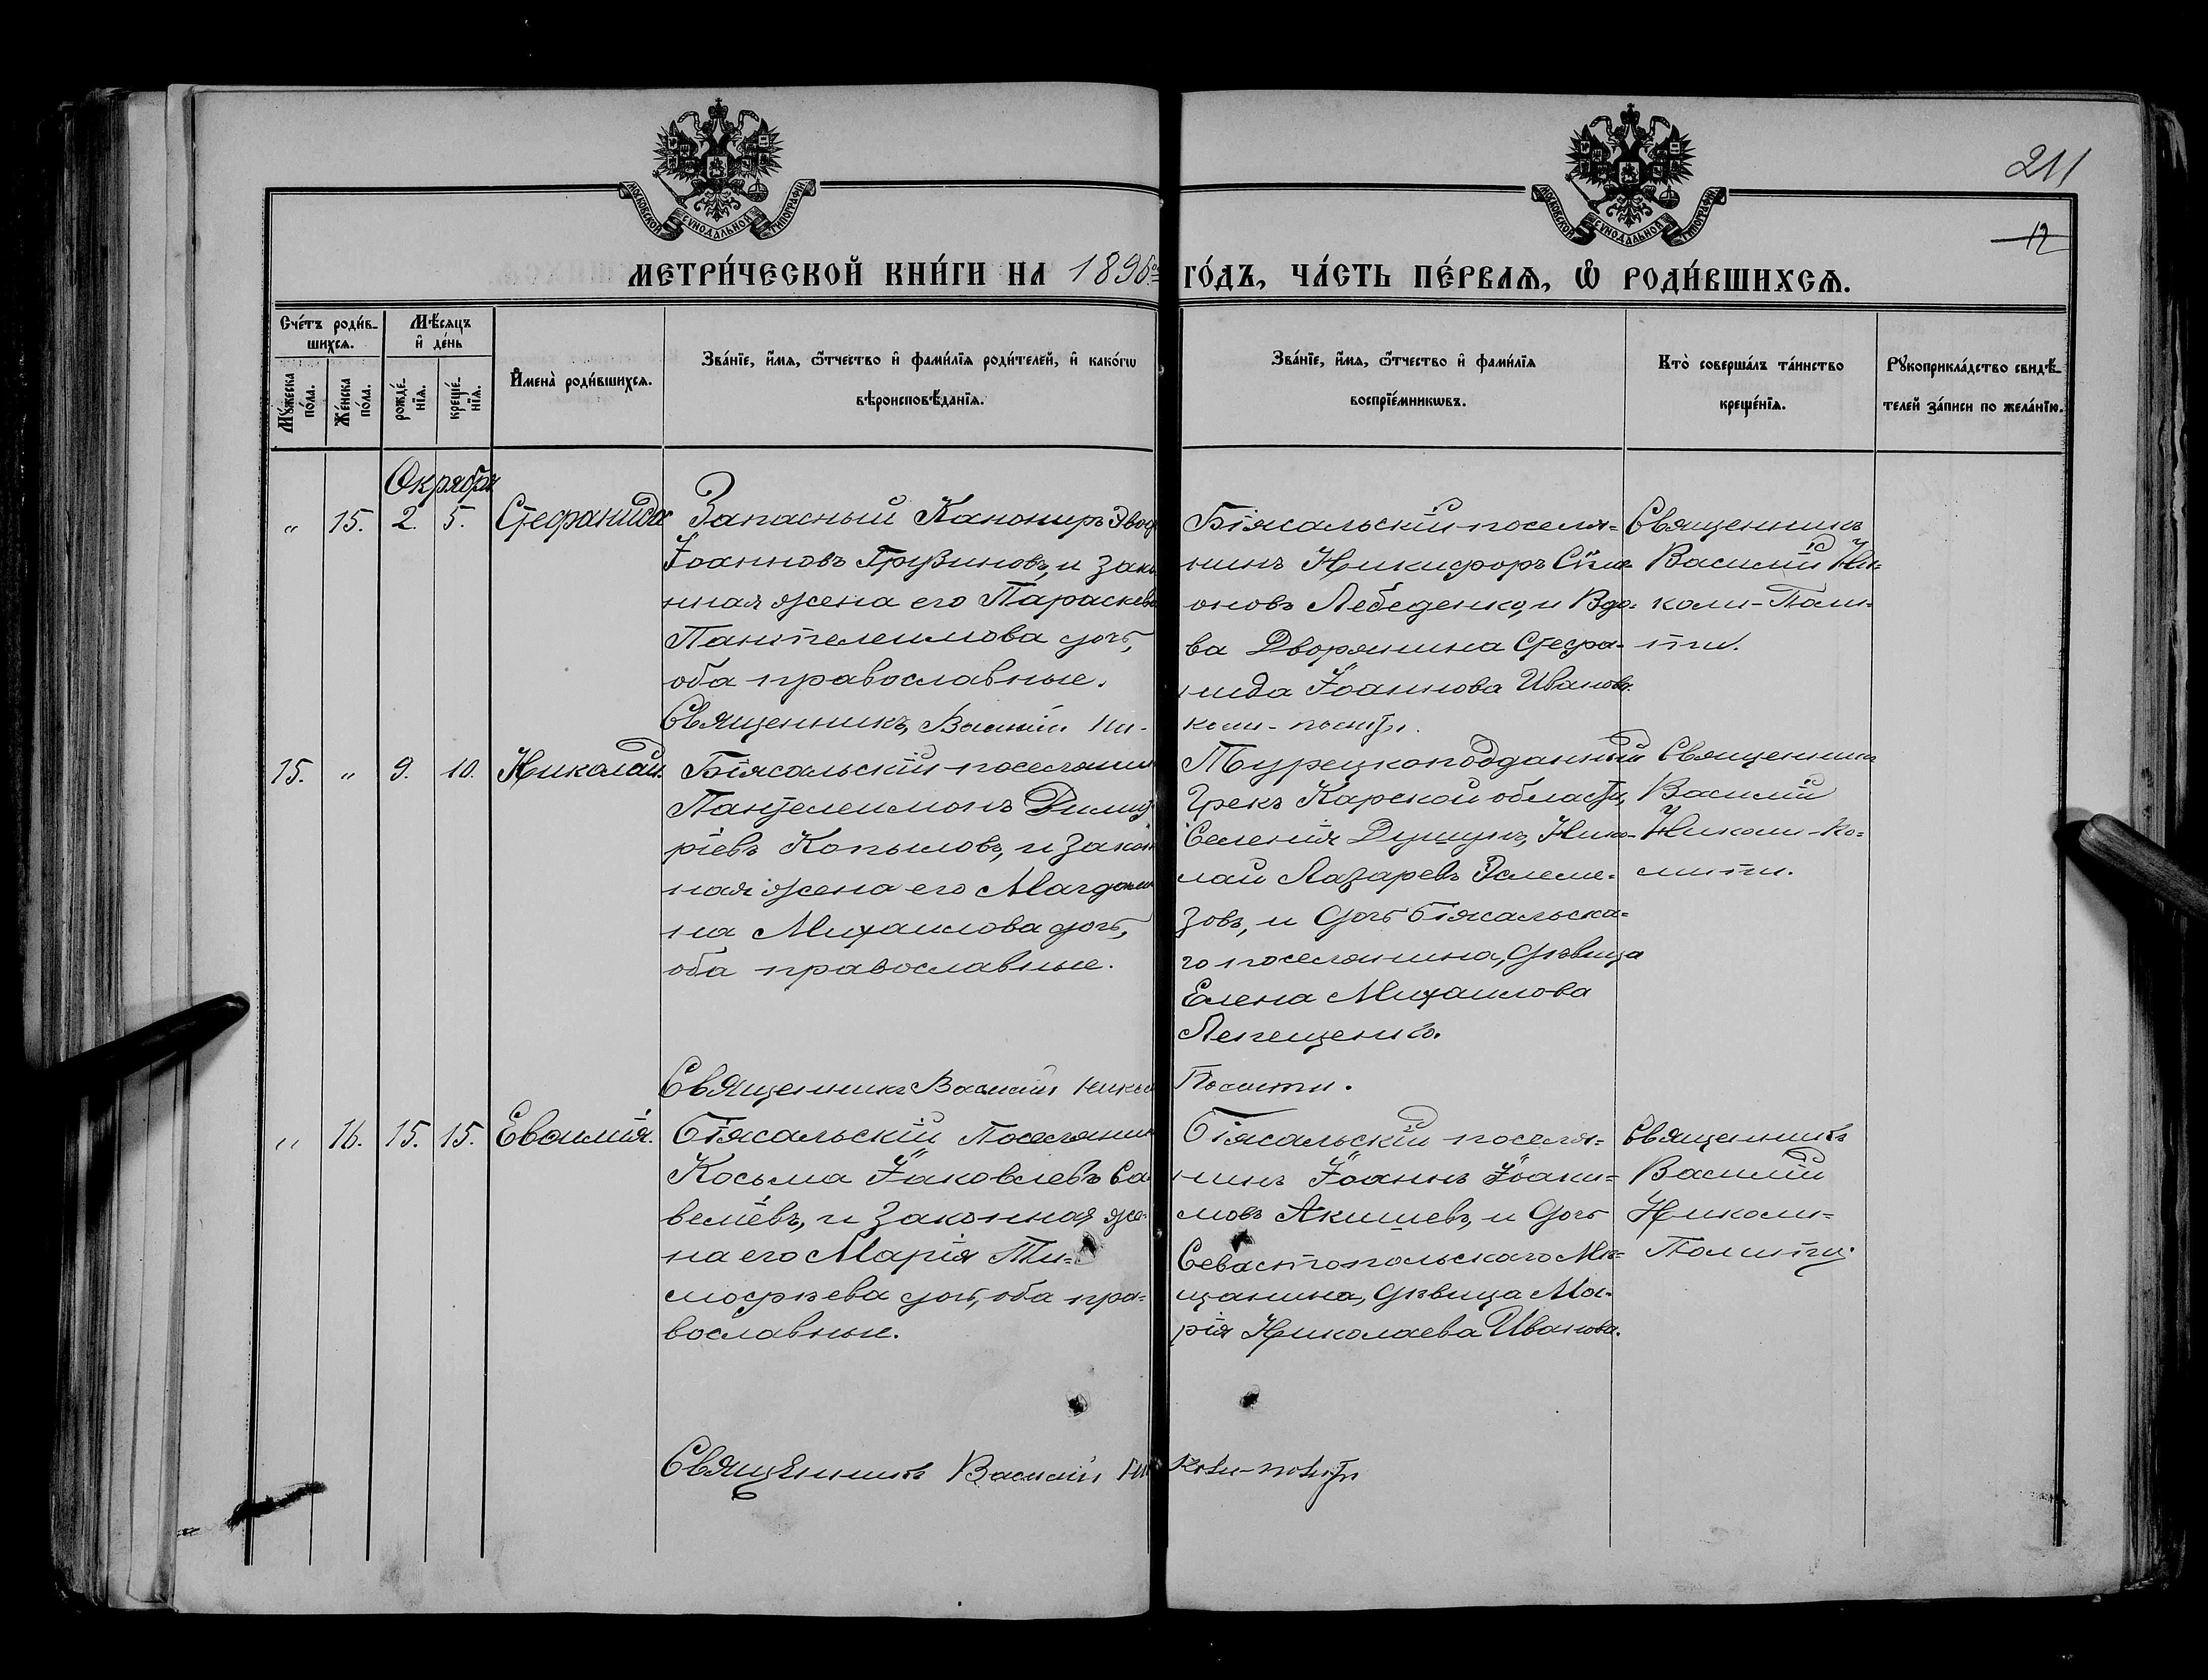 211
12
МОСКОВСКОЙ СѴНОДАЛЬНОЙ ТИПОГРАФІИ
МОСКОВСКОЙ СѴНОДАЛЬНОЙ ТИПОГРАФІИ
МЕТРИ́ЧЕСКОЙ КНИ́ГИ НА 1896й ГО́ДЪ, ЧА́СТЬ ПЕ́РВАѦ, Ѡ҆ РОДИ́ВШИХСѦ.
Сче́тъ роди́в-
шихсѧ.
Мꙋ́жеска по́ла.
Же́нска по́ла.
Мѣ́сѧцъ
и҆ де́нь
рожде́-нїѧ.
креще́-нїѧ.
И҆мена̀ роди́вшихсѧ.
Зва́нїе, и҆́мѧ, ѻ҆́тчество и҆ фами́лїѧ роди́телей, и҆ како́гѡ
вѣроисповѣ́данїѧ.
Зва́нїе, и҆́мѧ, ѻ҆́тчество и҆ фами́лїѧ
воспрїе́мникѡвъ.
Кто̀ соверша́лъ та́инство
креще́нїѧ.
Рꙋкоприкла́дство свидѣ́-
телей за́писи по жела́нїю.
Окрябрь
" 15. 2. 5. Стефанида
Запасный Канониръ
Іоанновъ Грузиновъ, и зако
нная жена его Параскева
Пантелеимова дочь,
оба православные.
Священникъ Василій Ни-
Біясальскій поселя=
нинъ Никифоръ Сѵме
оновъ Лебеденко, и Вдо-
ва Дворянина Стефа-
нида Іоаннова Иванова.
коли-политы.
Священникъ
Василій Ни
коли-Поли-
ты.
15. " 9. 10. Николай.
Біясальскій поселянин
Пантелеимонъ Димит
ріевъ Копыловъ, и закон
ная жена его Магдали
на Михаилова дочь,
оба православные.
Священникъ Василій Никол
Турецкоподданный
Грекъ Карской области,
Селенія Нико-
лай Лазаревъ
зовъ, и дочь біясальска=
го поселянина, дѣвица
Елена Михаилова
Лепещенко.
Политы.
Священникъ
Василій
Николи-По=
литы.
" 16. 15. 15. Евѳимія.
Біясальскій Поселянин
Косьма Іаковлевъ Са
веліевъ, и законная же-
на его Марія Ти-
мофѣева дочь, оба пра-
вославные.
Священникъ Василій Ни
Біясальскій поселя=
нинъ Іоаннъ Іоаки=
мовъ Акишевъ, и дочь
Севастопольскаго Мѣ=
щанина, дѣвица Ма-
рія Николаева Иванова.
коли-политы
Священникъ
Василій
Николи=
Политы.